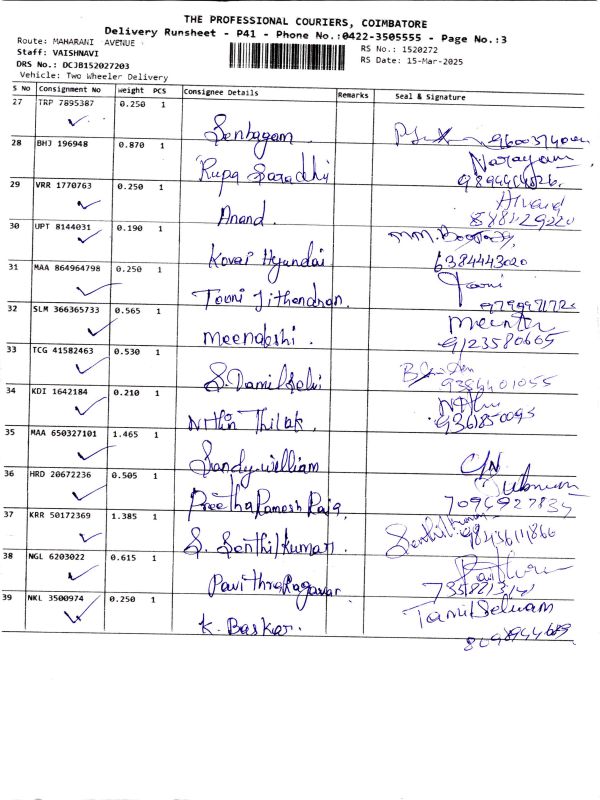 THE PROFESSIONAL COURIERS, COIMBATORE
Delivery Runsheet - P41 - Phone No.:0422-3505555 - Page No.:3
Route: MAHARANI AVENUE
RS No.: 1520272
Staff: VAISHNAVI
RS Date: 15-Mar-2025
DRS No.: DCJB152027203
Vehicle: Two Wheeler Delivery
S No Consignment No weight PCS Consignee Details Remarks Seal & Signature
27 TRP 7895387 0.250 1
Senbagam
28 BHJ 196948 0.870 1
Rupa Saradhi Narayanan
29 VRR 1770763 0.250 1
Anand Anand
30 UPT 8144031 0.190 1
Kovai Hyundai 6384443020
31 MAA 864964798 0.250 1
Tooni Jithendran
32 SLM 366365733 0.565 1
Meenakshi 9123580665
33 TCG 41582463 0.530 1
S. Damil Selvi 9384401055
34 KDI 1642184 0.210 1
Nithin Thilak 9361850095
35 MAA 650327101 1.465 1
Sandy william
36 HRD 20672236 0.505 1
Preetha Ramesh Raja 7094927834
37 KRR 50172369 1.385 1
S. Senthilkumar Senthilkumar
38 NGL 6203022 0.615 1
Pavithra Ragavar
39 NKL 3500974 0.250 1
K. Baskar Tamil Selvam